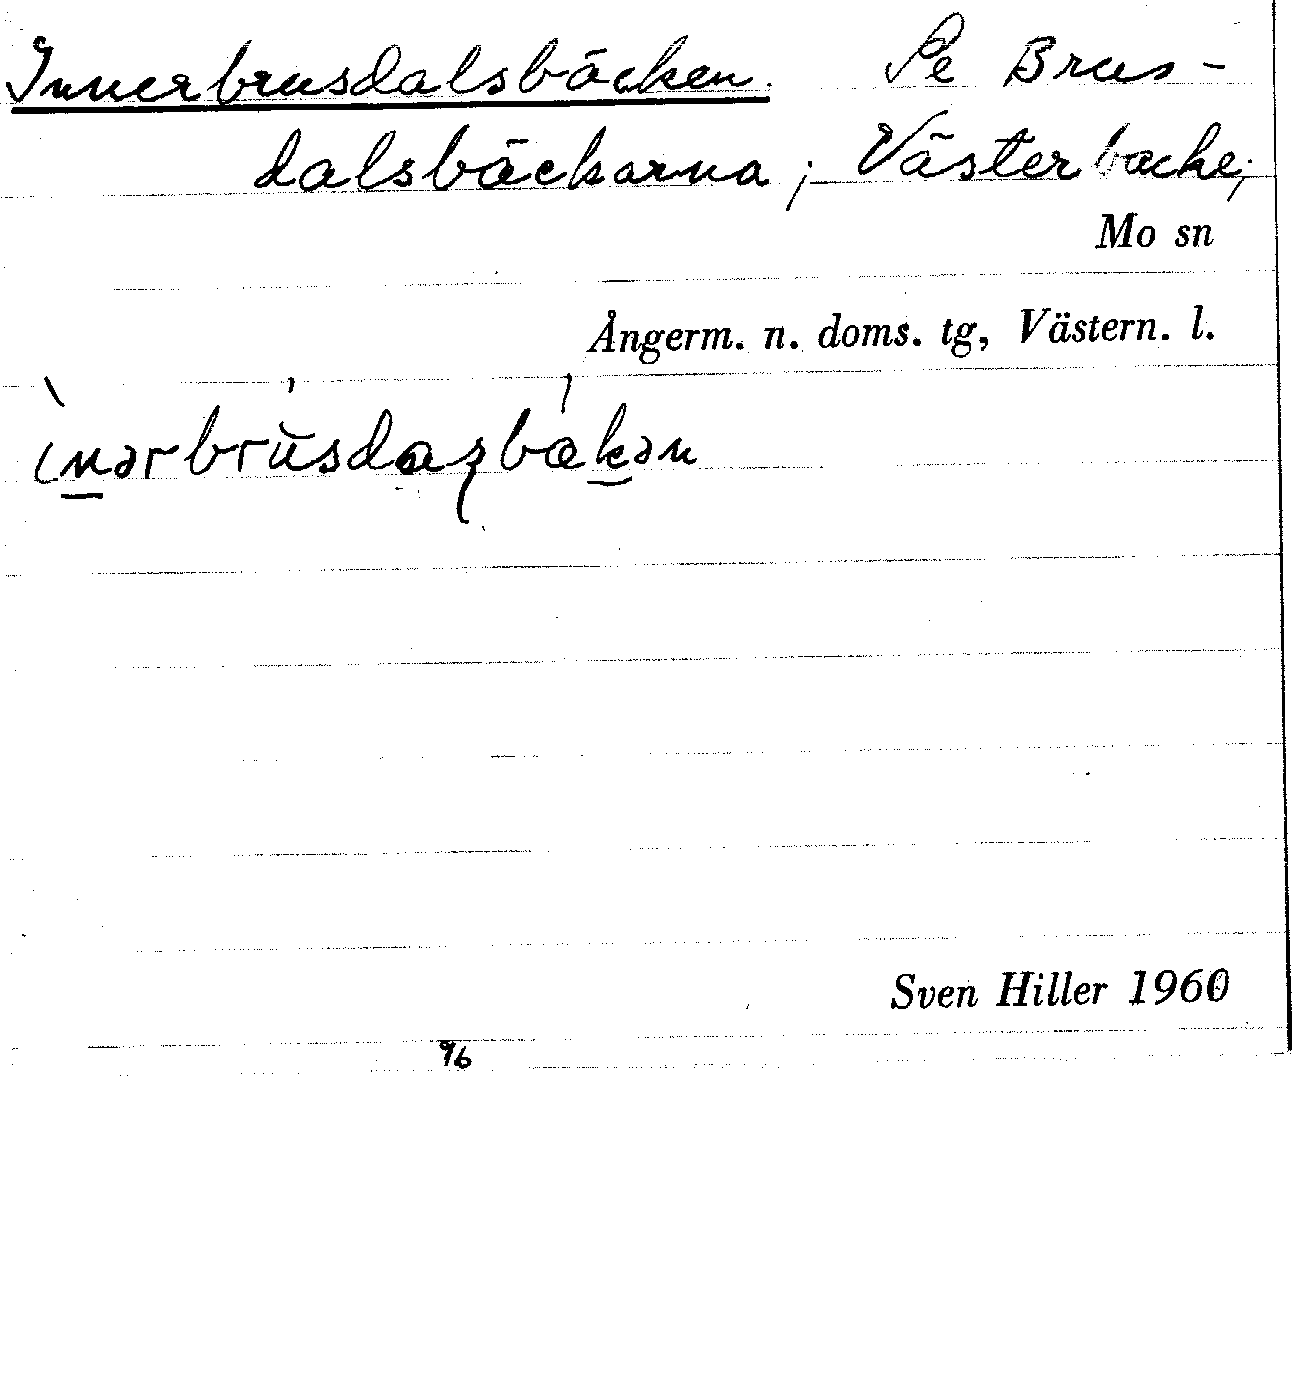 Innerbrusdalsbäcken. Se Brus-
dalsbäckarna; Västerbacke;
Mo sn
Ångerm. n. doms. tg, Västern. l.
ìnərbrŭsdaʂbækən
Sven Hiller 1960
96